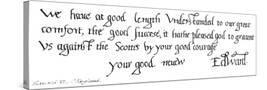 We have at good length Understanded to our great
comfort, the good succese, it hathe plesed god to graunt
Us against the Scottes by your good courage
your good neuew Edward